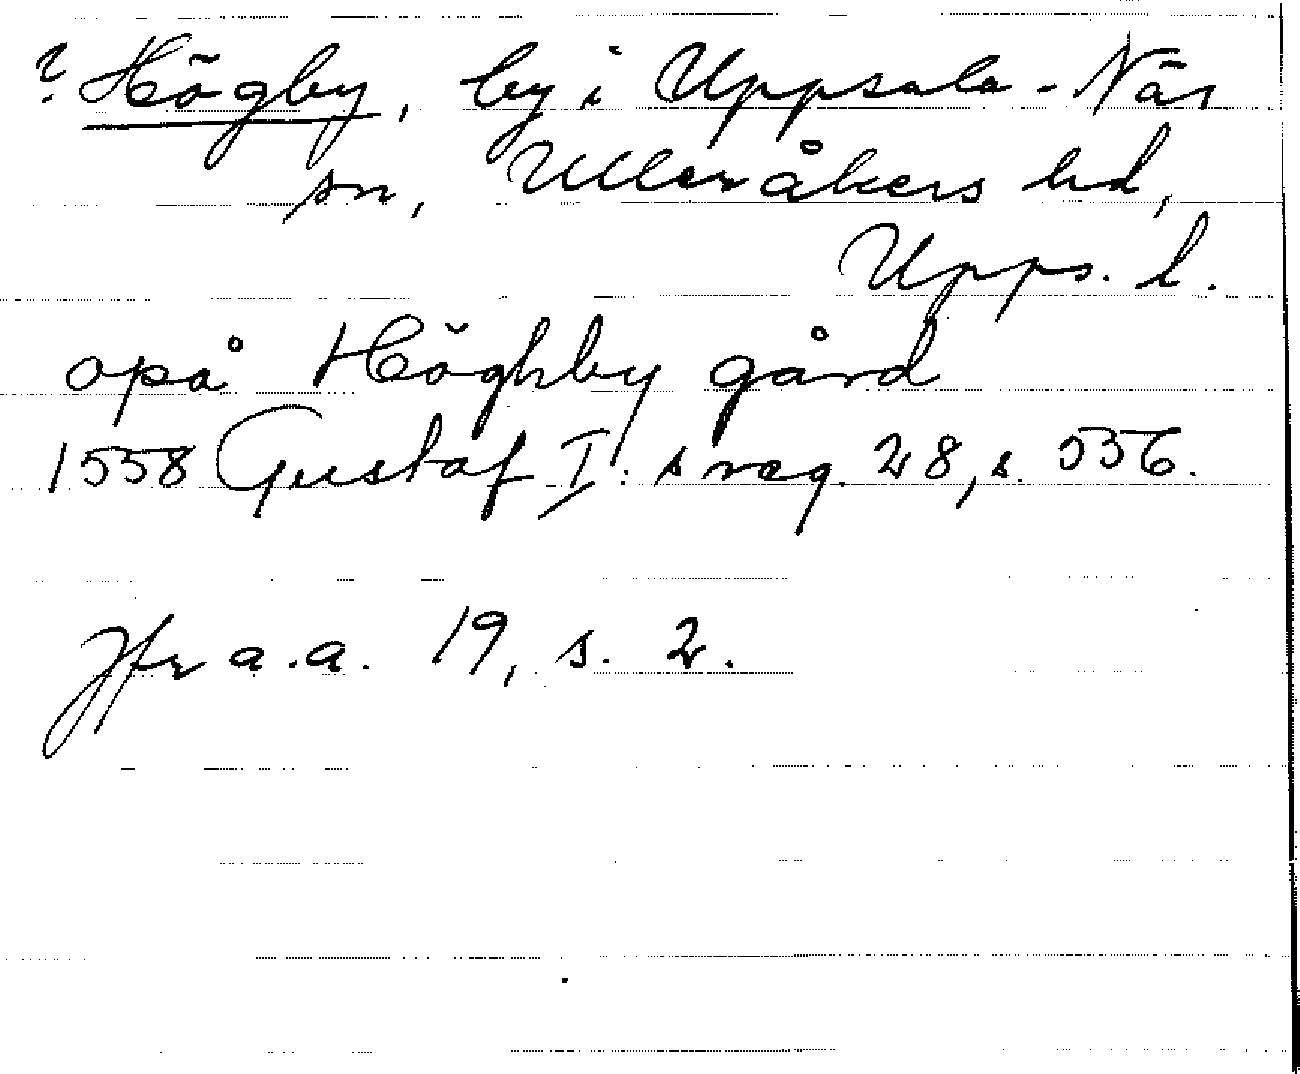 ? Högby, by i Uppsala-Näs
sn, Ulleråkers hd,
Upps. l.
opå Höghby gård
1558 Gustaf I:s reg. 28, s. 556.
Jfr a.a. 19, s. 2.